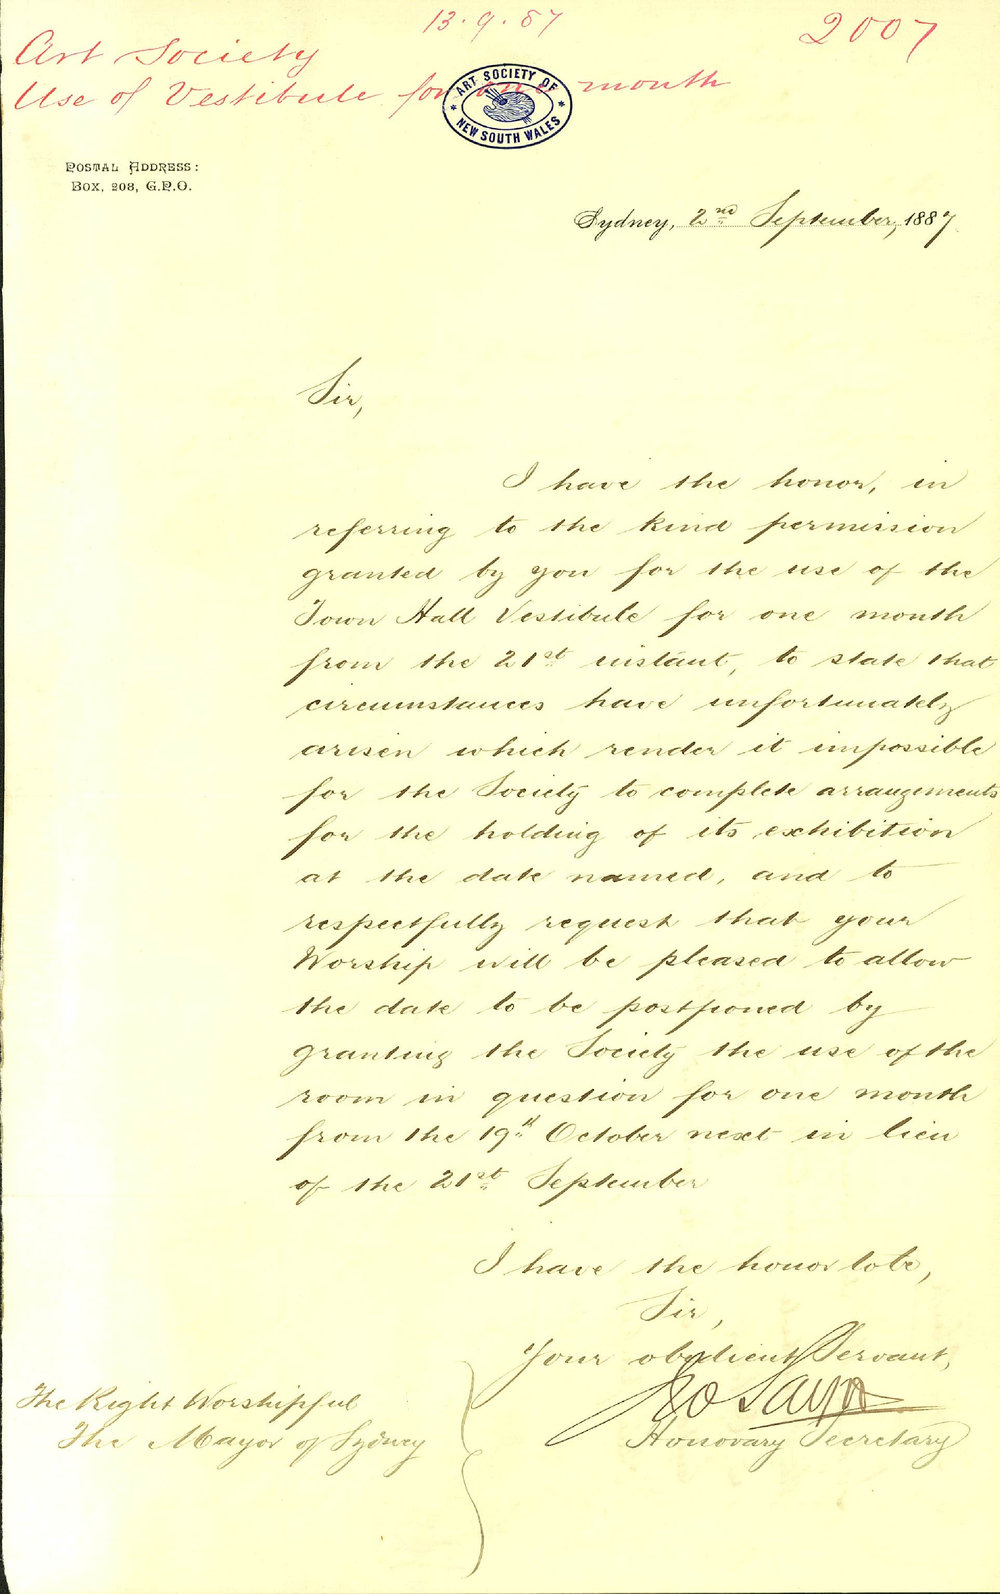 13.9.87
2007
Art Society
Use of Vestibule for one month
ART SOCIETY OF
NEW SOUTH WALES
POSTAL ADDRESS:
BOX, 208, G.P.O.
Sydney, 2nd September, 1887
Sir,
I have the honor, in
referring to the kind permission
granted by you for the use of the
Town Hall Vestibule for one month
from the 21st instant, to state that
circumstances have unfortunately
arisen which render it impossible
for the Society to complete arrangements
for the holding of its exhibition
at the date named, and to
respectfully request that your
Worship will be pleased to allow
the date to be postponed by
granting the Society the use of the
room in question for one month
from the 19th October next in lieu
of the 21st September
I have the honor to be,
Sir,
Your obedient Servant,
Honorary Secretary
The Right Worshipful
The Mayor of Sydney